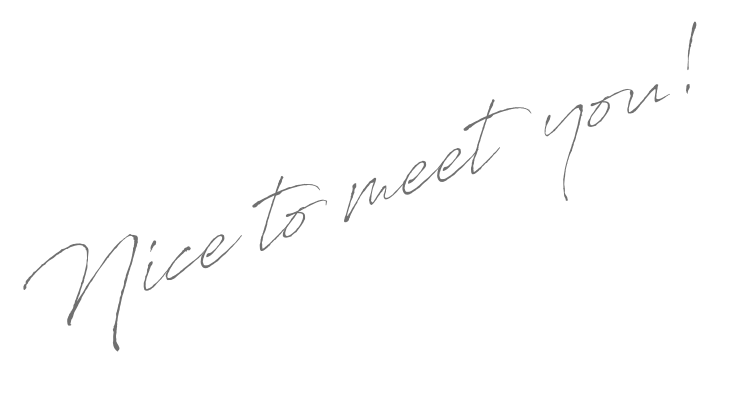 Nice to meet you!